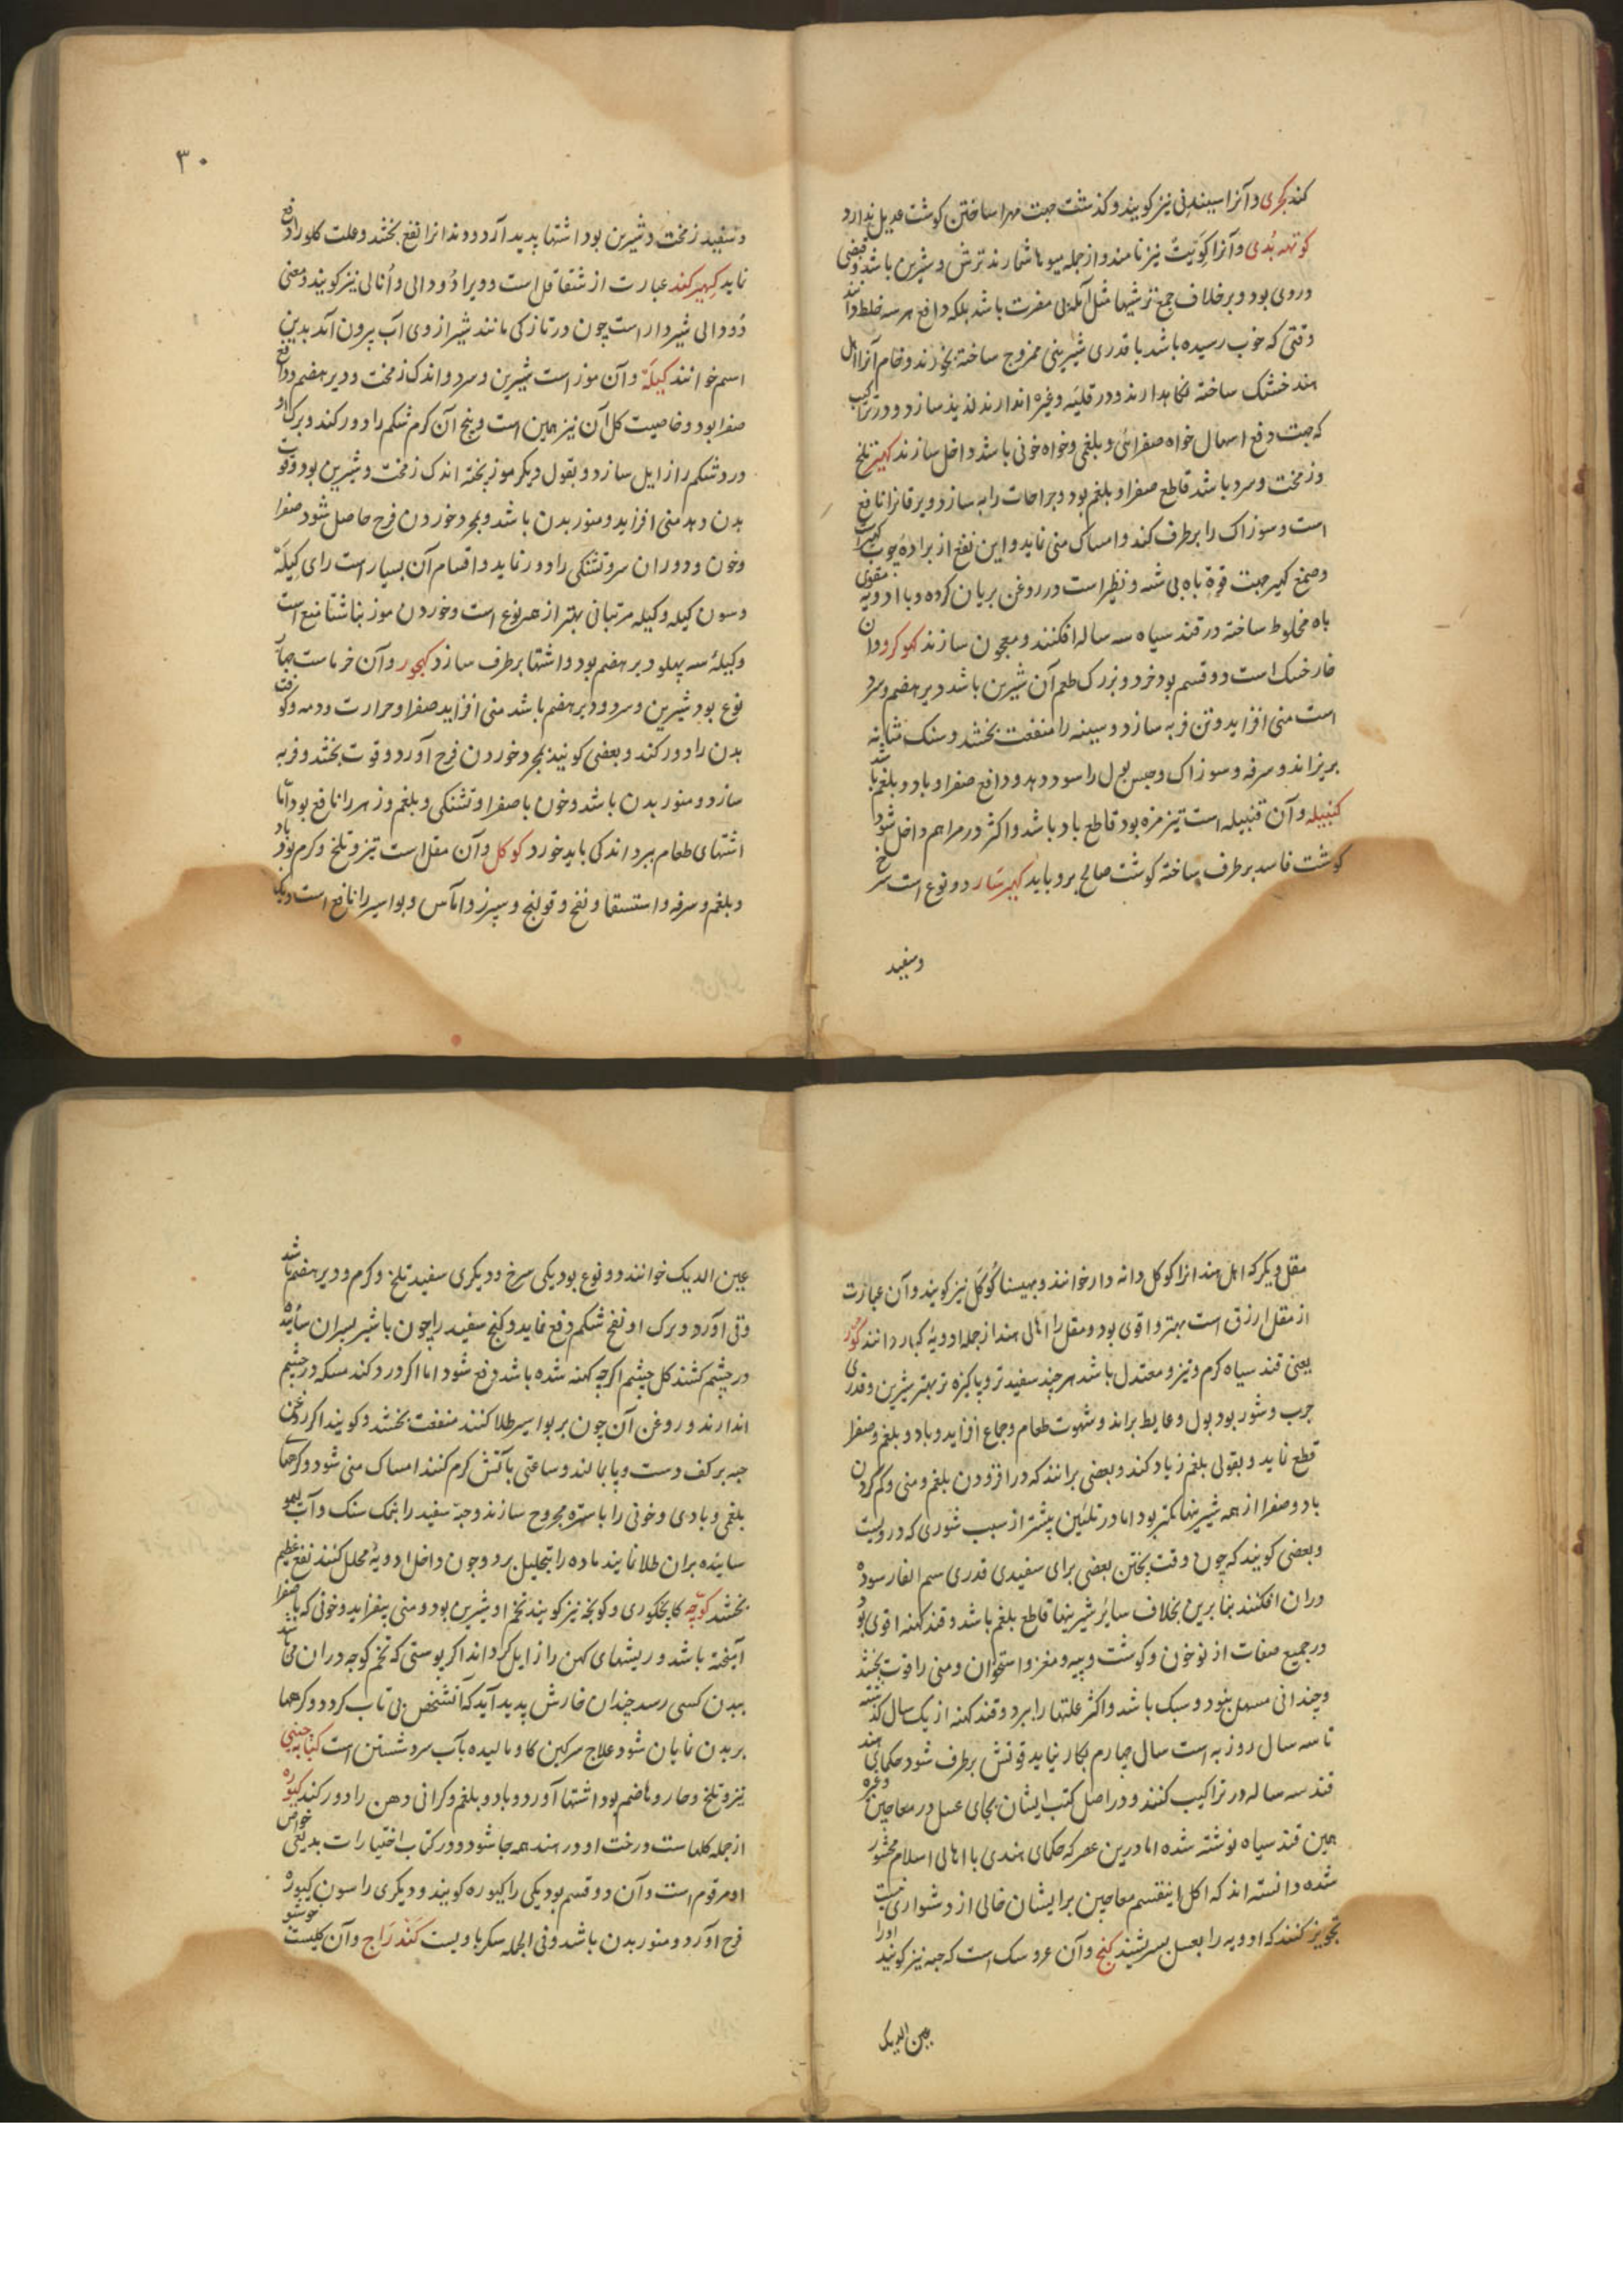 کند کجری و آنرا سیندنی نیز کویند و کذشت جهت مهرا ساختن کوشت عدیل ندارد
کوتهه بُدی و آنرا کَوِیتْ نیز نامند و از جمله میوها شمارند ترش و شیرین باشد و قبضی
دروی بود و برخلاف جمیع ترشیها مثل آمله بی مضرت باشد بلکه دافع هر سه خلط دانند
وقتی که خوب رسیده باشد با قدری شیرینی ممزوج ساخته بخورند و خام آنرا اهل
هند خشک ساخته نکاهدارند و در قلیه و غیره اندازند لذیذ سازد و در تراکیب
که جهت دفع اسهال خواه صفرائی و بلغمی و خواه خونی باشد داخل سازند کهیر تلخ
و زمخت و سرد باشد قاطع صفرا و بلغم بود و جراحات را به سازد و یرقانرا نافع
است و سوزاک را برطرف کند و امساک منی نماید و این نفع از براده چوب کهیر است
و صمغ کهیر جهت قوة باه بی شبه و نظیر است در روغن بریان کرده و با ادویه مقوی
باه مخلوط ساخته در قند سیاه سه ساله افکنند و معجون سازند کهوکرو و آن
خار خسک است دو قسم بود خرد و بزرک طعم آن شیرین باشد دیر هضم و سرد
است منی افزاید و تن فربه سازد و سینه را منفعت بخشد و سنک مثانه
بریزاند و سرفه و سوزاک و حبس بول را سود دهد و دافع صفرا و باد و بلغم باشد
کنبیله و آن قنبیله است تیز مزه بود قاطع باد باشد و اکثر در مراهم داخل شود
کوشت فاسد برطرف ساخته کوشت صالح برویاید کهیرسار دو نوع است سرخ
وسفید
۳۰
و سفید زمخت و شیرین بود اشتها پدید آرد و دندانرا نفع بخشد و علت کلو را دفع
نماید کهیرکند عبارت از شقاقل است و ویرا دُودالی و اُنالی نیز کویند و معنی
دُودالی شیردار است چون در تازکی مانند شیر از وی آب بیرون آید بدین
اسم خوانند کیلَه و آن موز است شیرین و سرد و اندک زمخت و دیر هضم و دافع
صفرا بود و خاصیت کل آن نیز همین است و بیخ آن کرم شکم را دور کند و برک او
درد شکم را زایل سازد و بقول دیکر موز پخته اندک زمخت و شیرین بود و قوت
بدن دهد منی افزاید و منور بدن باشد و بمجرد خوردن فرح حاصل شود صفرا
و خون و دوران سر و تشنکی را دور نماید و اقسام آن بسیار است رای کیلَه
و سون کیله و کیله مرتبانی بهتر از هر نوع است و خوردن موز بناشتا منع است
و کیلهٔ سه پهلو دیر هضم بود و اشتها برطرف سازد کهجور و آن خرماست چهار
نوع بود شیرین و سرد و دیر هضم باشد منی افزاید صفرا و حرارت و دمه و کوفت
بدن را دور کند و بعضی کویند بمجرد خوردن فرح آورد و قوت بخشد و فربه
سازد و منور بدن باشد و خون با صفرا و تشنکی و بلغم و زهر را نافع بود اما
اشتهای طعام ببرد اندکی باید خورد کوکل و آن مقل است تیز و تلخ و کرم بود باد
و بلغم و سرفه و استسقا و نفخ و قولنج و سپرز و اماس و بواسیر را نافع است و یک
مقل دیکر که اهل هند انرا کوکل دانه دار خوانند و بهینسا کُوکَل نیز کویند و آن عبارت
از مقل ارزق است بهتر و اقوی بود و مقل را اهالی هند از جمله ادویهٔ کبار دانند کور
یعنی قند سیاه کرم و تیز و معتدل باشد هر چند سفیدتر و پاکیزه تر بهتر شیرین و قدری
چرب و شور بود بول و غایط براند و شهوت طعام و جماع افزاید و باد و بلغم و صفرا
قطع نماید و بقولی بلغم زیاد کند و بعضی برانند که در افزودن بلغم و منی و کم کردن
باد و صفرا از همه شیرینها کمتر بود اما در تلئین بیشتر از سبب شوری که درویست
و بعضی کویند که چون وقت پختن بعضی برای سفیدی قدری سم الفار سوده
دران افکنند بنابرین بخلاف سائر شیرینها قاطع بلغم باشد و قند کهنه اقوی بود
در جمیع صفات از نو خون و کوشت و پیه و مغز و استخوان و منی را قوت بخشد
و چندانی مسهل نبود و سبک باشد و اکثر علتها را ببرد و قند کهنه از یک سال کذشته
تا سه سال روز به است سال چهارم بکار نیاید قوتش برطرف شود حکمای هند
قند سه ساله در تراکیب کنند و در اصل کتب ایشان بجای عسل در معاجین و غیره
همین قند سیاه نوشته شده اما درین عصر که حکمای هندی با اهالی اسلام محشور
شده دانسته اند که اکل اینقسم معاجین برایشان خالی از دشواری نیست
تجویز کنند که ادویه را بعسل بسرشند کنج و آن عروسک است که حبه نیز کویند اورا
عین الدیک
عین الدیک خوانند دو نوع بود یکی سرخ و دیکری سفید تلخ و کرم و دیر هضم باشد
و قی آورد و برک او نفخ شکم دفع نماید و کنج سفید را چون با شیر پسران سائیده
در چشم کشند کل چشم اکرچه کهنه شده باشد دفع شود اما اکر درد کند مسکه در چشم
اندازند و روغن آن چون بر بواسیر طلا کنند منفعت بخشد و کویند اکر روغن
حبه بر کف دست و پا بمالند و ساعتی بآتش کرم کنند امساک منی شود و کرمهای
بلغمی و بادی و خونی را باستره مجروح سازند و حبه سفید را بنمک سنک و آب لیمو
سائیده بران طلا نمایند ماده را بتحلیل برد و چون داخل ادویهٔ محلل کنند نفع عظیم
بخشد کوچه کا بجکوری و کوبخه نیز کویند تخم او شیرین بود و منی بیفزاید و خونی که با صفرا
آمیخته باشد و ریشهای کهن را زایل کرداند اکر پوستی که تخم کوچه دران میباشد
ببدن کسی رسد چندان خارش پدید آید که آنشخص بی تاب کردد و کرمها
بر بدن نمایان شود علاج سرکین کاو مالیده بآب سرد شستن است کبابه چینی
تیز و تلخ و حار و هاضم بود اشتها آورد و باد و بلغم و کرانی دهن را دور کند کیوره
از جمله کلهاست درخت او در هند همه جا شود و در کتاب اختیارات بدیعی خواص
او مرقوم است و آن دو قسم بود یکی را کیوره کویند و دیکری را سون کیوره
فرح آورد و منور بدن باشد و فی الجمله سکر باویست کَنْدراج و آن کلیست خوشبو